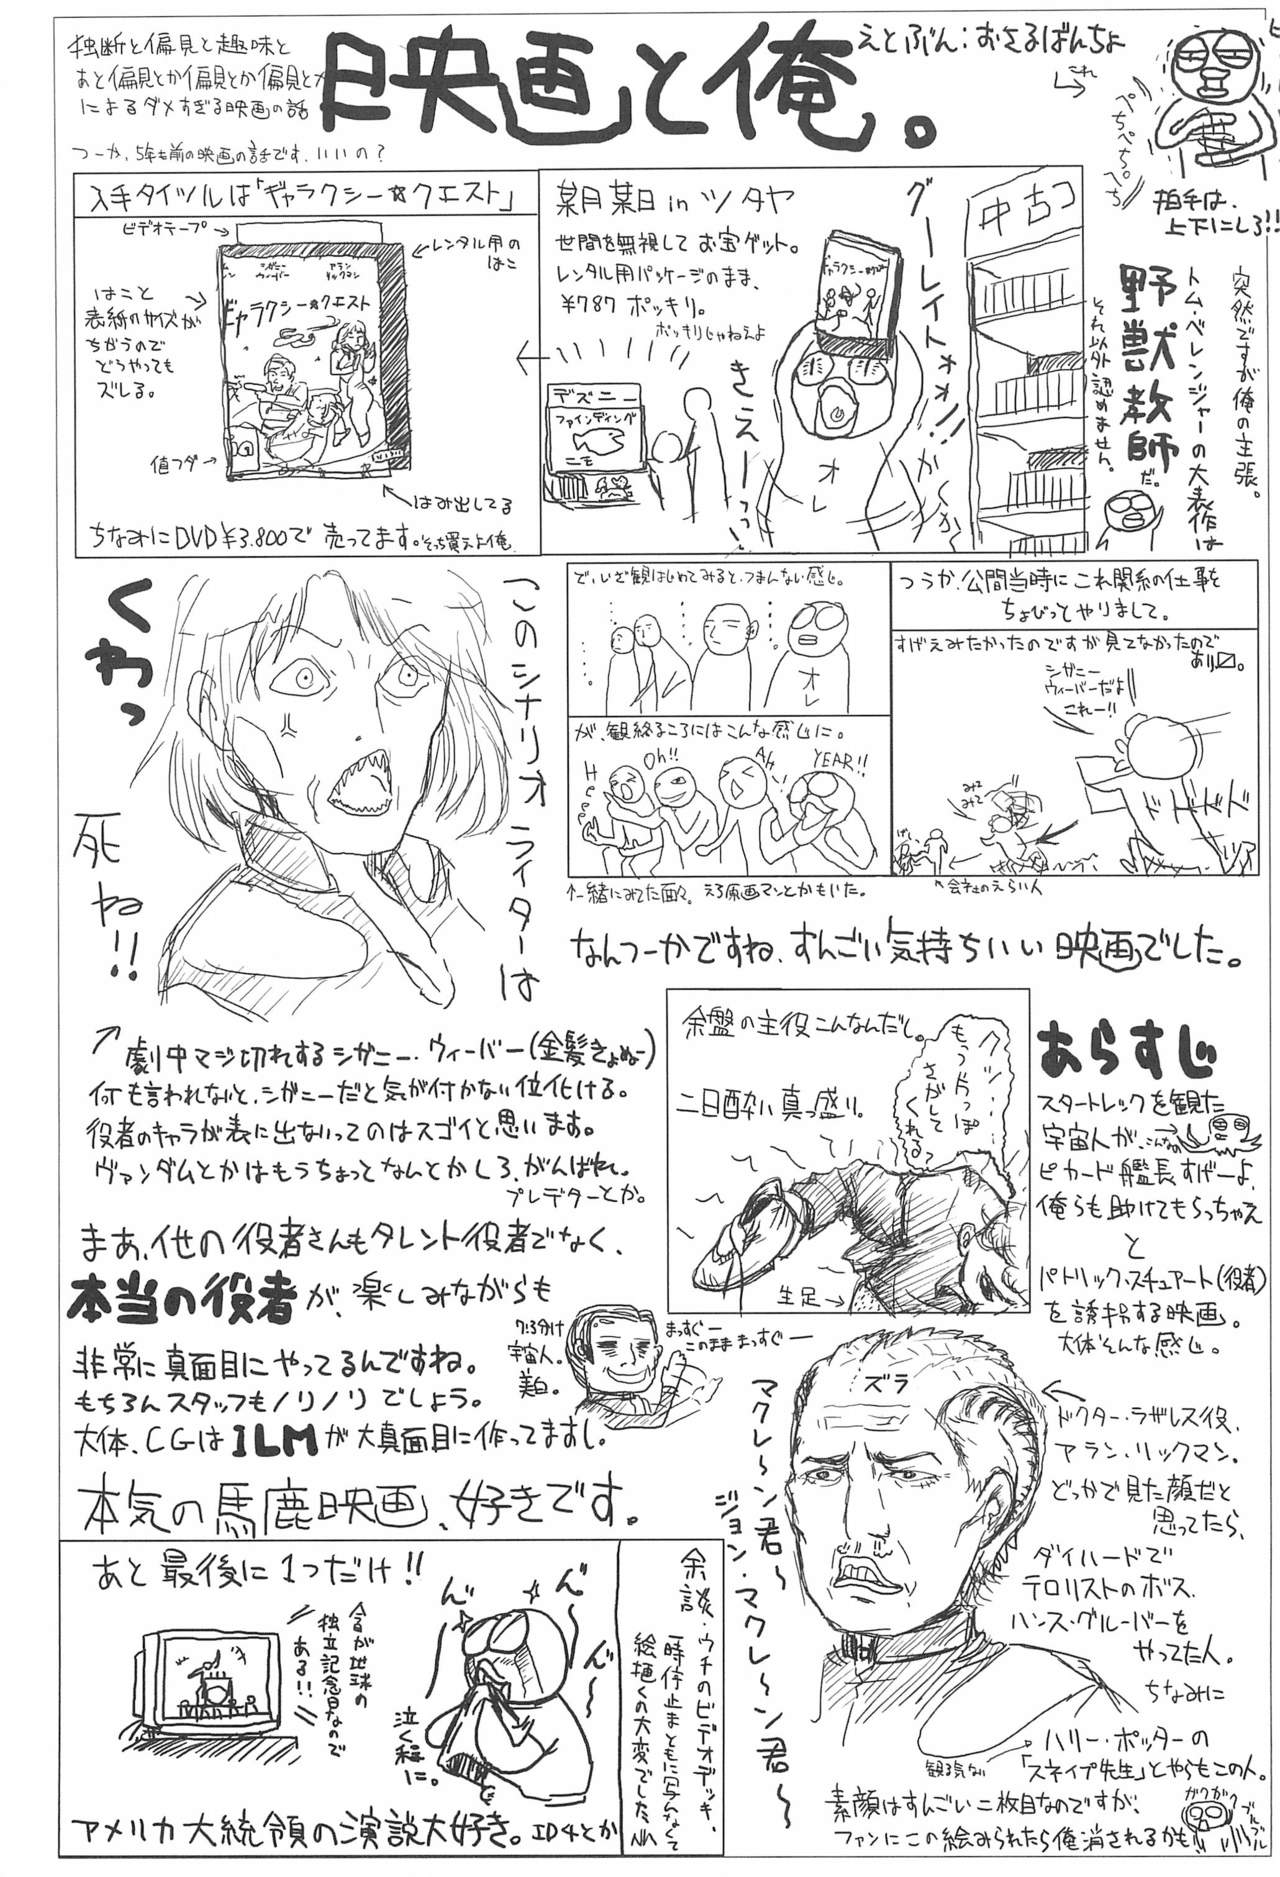 独断と偏見と趣味と
あと偏見とか偏見とか偏見とか
によるダメすぎる映画の話
つーか、5年も前の映画の話です、いいの?
映画と俺。
えとぶん:おさるばんちょ
これ
ぺちぺち。ぺち
拍手は、
上下にしろ!!
入手タイツルは「ギャラクシー☆クエスト」
ビデオテープ
レンタル用の
はこ
シガニー
ウィーバー
アラン
リックマン
ギャラクシー☆クエスト
はこと
表紙のサイズが
ちがうので
どうやっても
ズレる。
値フダ
はみ出してる
ちなみにDVD¥3.800で売ってます。そっち買えよ俺
某月某日inツタヤ
世間を無視してお宝ゲット。
レンタル用パッケージのまま、
¥787ポッキリ。
ポッキリじゃねえよ
デズニー
ファインディング
ニモ
グーレイトォォ!!
ギャラクシー☆クエスト
きえーっっ!
がくがく
オレ
中古コ
突然ですが俺の主張。
トム・ベレンジャーの大表作は
野獣教師だ。
それ以外認めません。
このシナリオライターは
くわっ
死ね!!
で、いざ観はじめてみると、つまんない感じ。
オレ
が、観終るころにはこんな感じに。
Oh!!
Ah
YEAR!!
↑一緒にみてた面々。えろ原画マンとかもいた。
つうか、公開当時にこれ関系の仕事を
ちょびっとやりまして。
すげえみたかったのですが見てなかったので
シガニー
ウィーバーだよ
これー!!
みて
みて
ドドドド
会社のえらい人
なんつーかですね、すんごい気持ちいい映画でした。
劇中マジ切れするシガニー・ウィーバー(金髪きょぬー)
何も言われないと、シガニーだと気が付かない位化ける。
役者のキャラが表に出ないってのはスゴイと思います。
ヴァンダムとかはもうちょっとなんとかしろ、がんばれ。
プレデターとか。
まあ、他の役者さんもタレント役者でなく、
本当の役者が、楽しみながらも
非常に真面目にやってるんですね。
もちろんスタッフもノリノリでしょう。
大体、CGはILMが大真面目に作ってますし。
本気の馬鹿映画、好きです。
7:3分け
宇宙人。
美白。
まっすぐー
このまままっすぐー
余盤の主役こんなんだし。
二日酔い真っ盛り。
クソッ・・・
もう片っぽ
さがして
くれる?
生足
あらすじ
スタートレックを観た
宇宙人が、こんなの
ピカード艦長すげーよ、
俺らも助けてもらっちゃえ
と
パトリック・スチュアート(役者)
を誘拐する映画。
大体そんな感じ。
ズラ
マクレ〜ン君〜
ジョン・マクレ〜ン君〜
ドクター・ラザレス役、
アラン・リックマン。
どっかで見た顔だと
思ってたら、
ダイハードで
テロリストのボス、
ハンス・グルーバーを
やってた人。
ちなみに
ハリー・ポッターの
「スネイプ先生」とやらもこの人。
観る気ない
素顔はすんごい二枚目なのですが、
ファンにこの絵みられたら俺消されるかも
ガクガク
ブルブル
あと最後に1つだけ!!
今日が地球の
独立記念日なので
ある!!
ん゛〜
ん゛〜
ん゛〜
泣く程
に。
アメリカ大統領の演説大好き。ID4とか
余談・ウチのビデオデッキ、
一時停止まともに写んなくて
絵描くの大変でした。